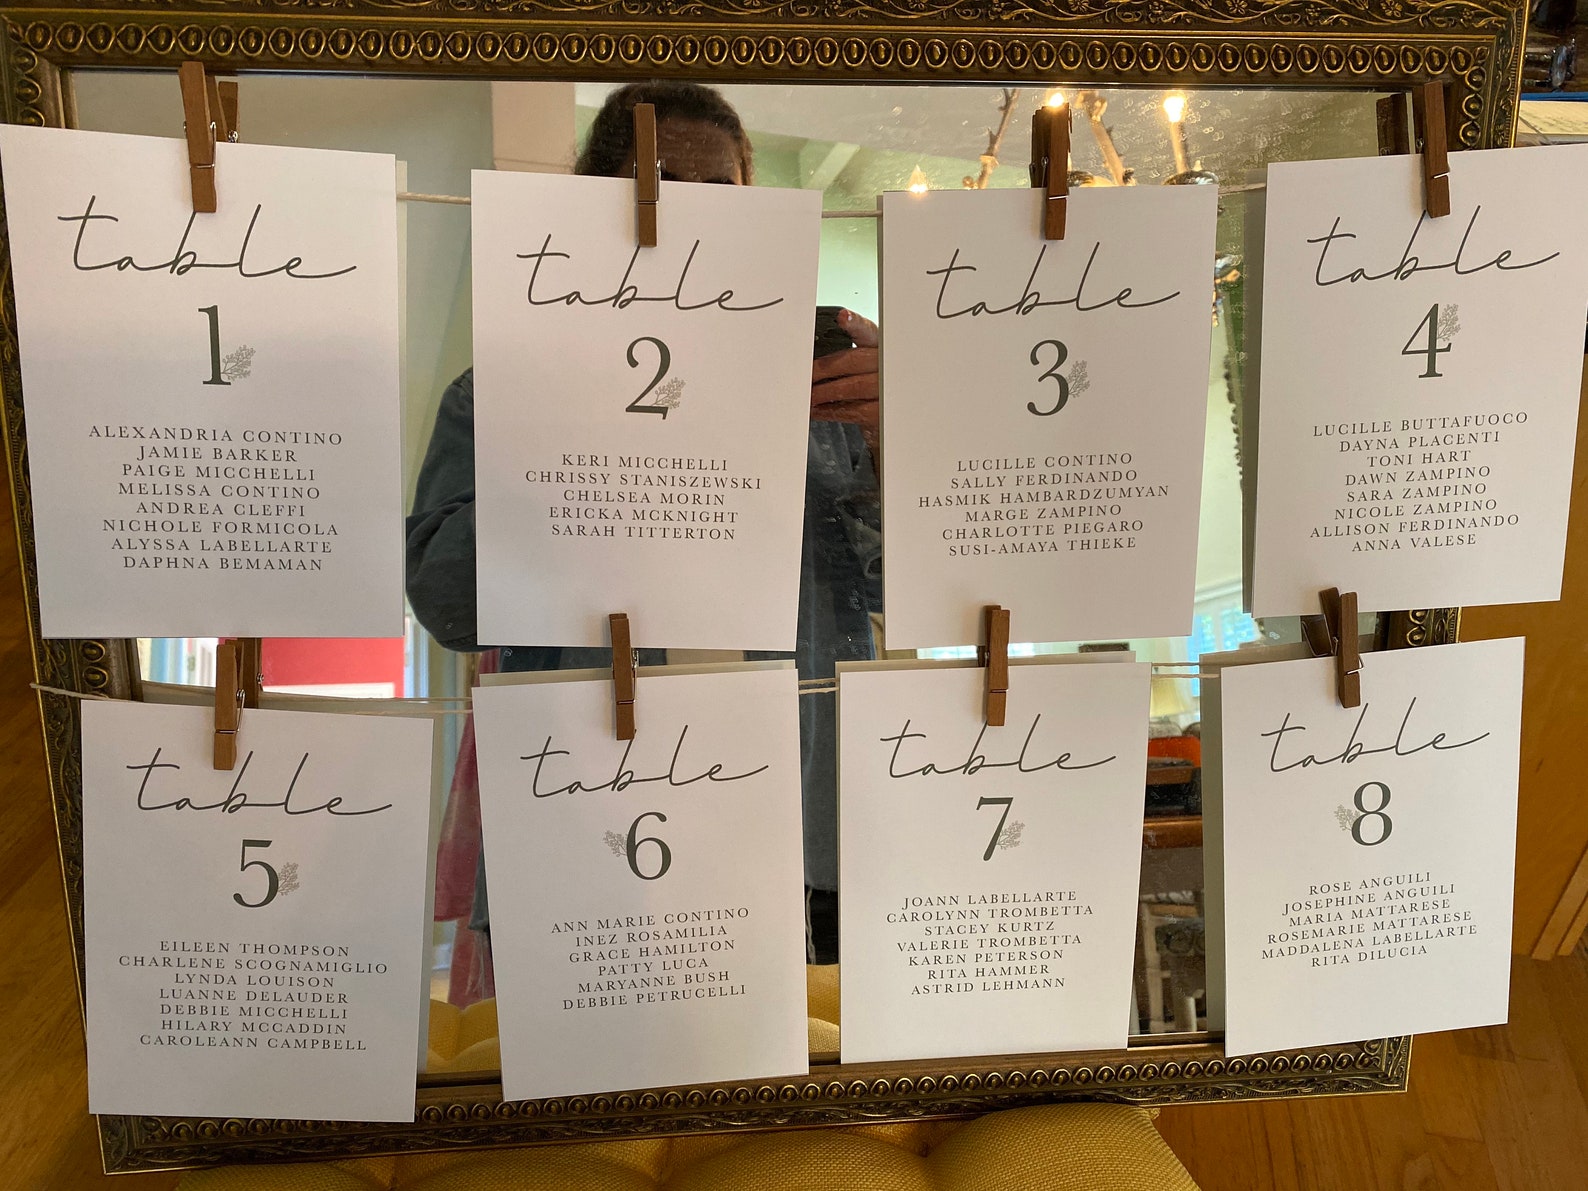 table
1
ALEXANDRIA CONTINO
JAMIE BARKER
PAIGE MICCHELLI
MELISSA CONTINO
ANDREA CLEFFI
NICHOLE FORMICOLA
ALYSSA LABELLARTE
DAPHNA BEMAMAN
table
2
KERI MICCHELLI
CHRISSY STANISZEWSKI
CHELSEA MORIN
ERICKA MCKNIGHT
SARAH TITTERTON
table
3
LUCILLE CONTINO
SALLY FERDINANDO
HASMIK HAMBARDZUMYAN
MARGE ZAMPINO
CHARLOTTE PIEGARO
SUSI-AMAYA THIEKE
table
4
LUCILLE BUTTAFUOCO
DAYNA PLACENTI
TONI HART
DAWN ZAMPINO
SARA ZAMPINO
NICOLE ZAMPINO
ALLISON FERDINANDO
ANNA VALESE
table
5
EILEEN THOMPSON
CHARLENE SCOGNAMIGLIO
LYNDA LOUISON
LUANNE DELAUDER
DEBBIE MICCHELLI
HILARY MCCADDIN
CAROLEANN CAMPBELL
table
6
ANN MARIE CONTINO
INEZ ROSAMILIA
GRACE HAMILTON
PATTY LUCA
MARYANNE BUSH
DEBBIE PETRUCELLI
table
7
JOANN LABELLARTE
CAROLYNN TROMBETTA
STACEY KURTZ
VALERIE TROMBETTA
KAREN PETERSON
RITA HAMMER
ASTRID LEHMANN
table
8
ROSE ANGUILI
JOSEPHINE ANGUILI
MARIA MATTARESE
ROSEMARIE MATTARESE
MADDALENA LABELLARTE
RITA DILUCIA